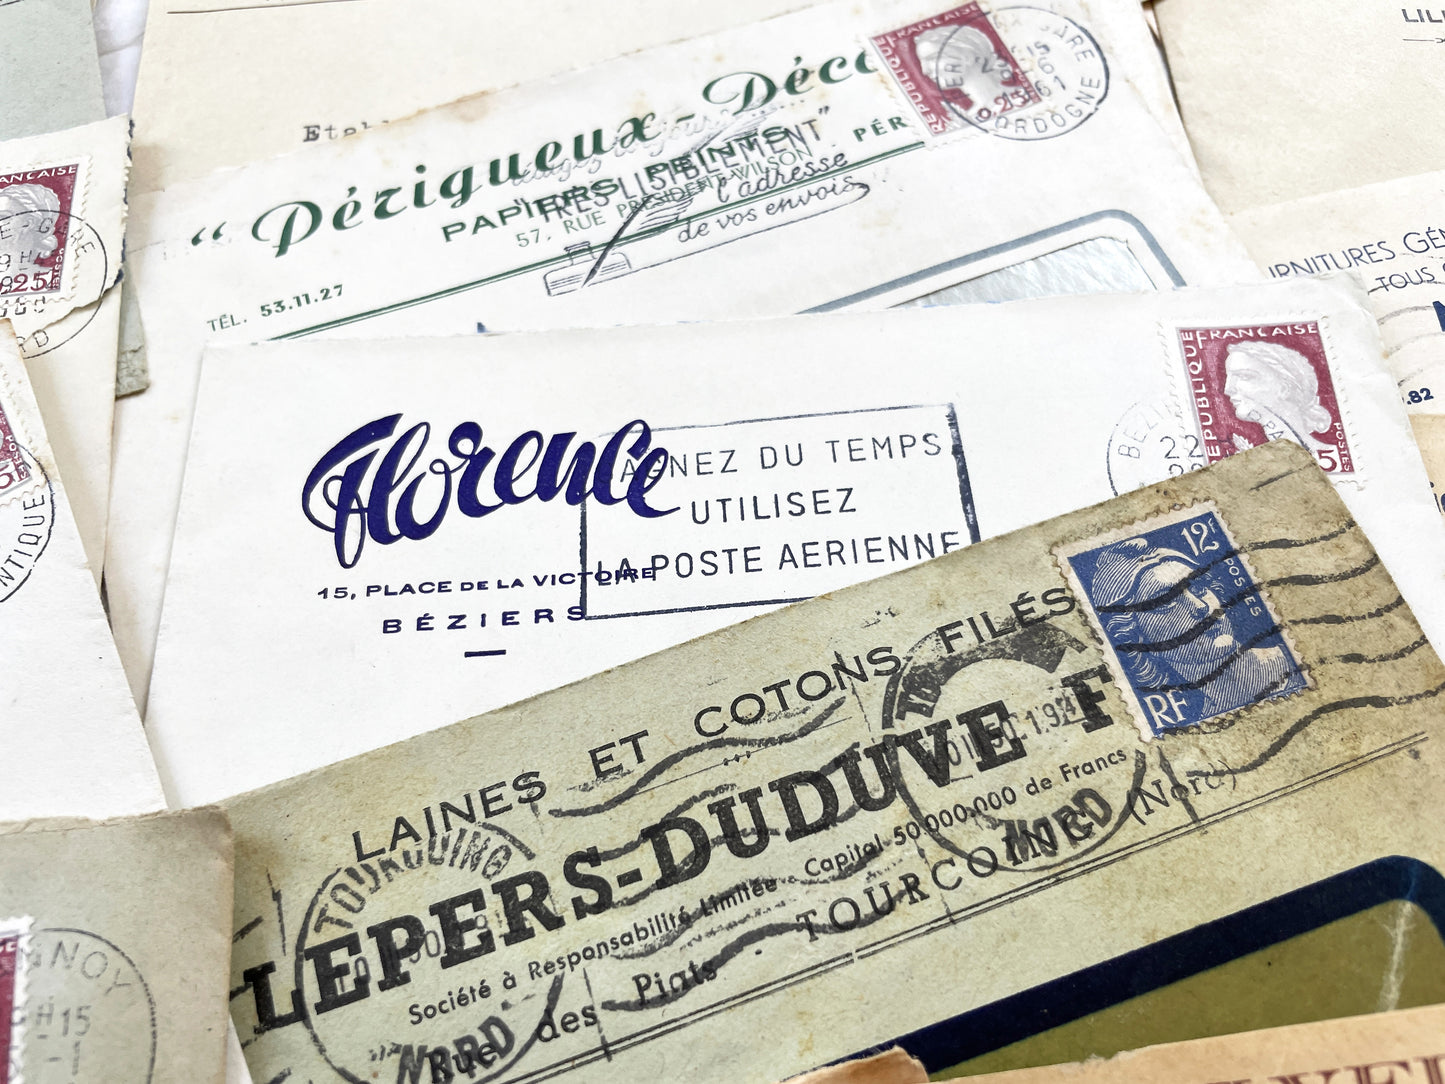 LIL
Etab
"Périgueux-Déco
PAPIERS PEINTS PÉR
57, RUE PRÉSIDENT-WILSON
TÉL. 53.11.27
rédigez toujours
TRÈS LISIBLEMENT"
l'adresse
de vos envois
RÉPUBLIQUE FRANÇAISE
0.25
GARE
15
1961
DORDOGNE
ANÇAISE
GARE
0.25
POSTES
NTIQUE
RNITURES GÉN
TOUS
.82
Florence
15, PLACE DE LA VICTOIRE
BÉZIERS
GAGNEZ DU TEMPS
UTILISEZ
LA POSTE AERIENNE
RÉPUBLIQUE FRANÇAISE
POSTES
BEZIERS
22
LAINES ET COTONS FILÉS
LEPERS-DUDUVE F
Société à Responsabilité Limitée - Capital 50.000.000 de Francs
Rue des Piats - TOURCOING (Nord)
12F
POSTES
RF
TOURCOING
NORD
NORD
NNOY
H 15